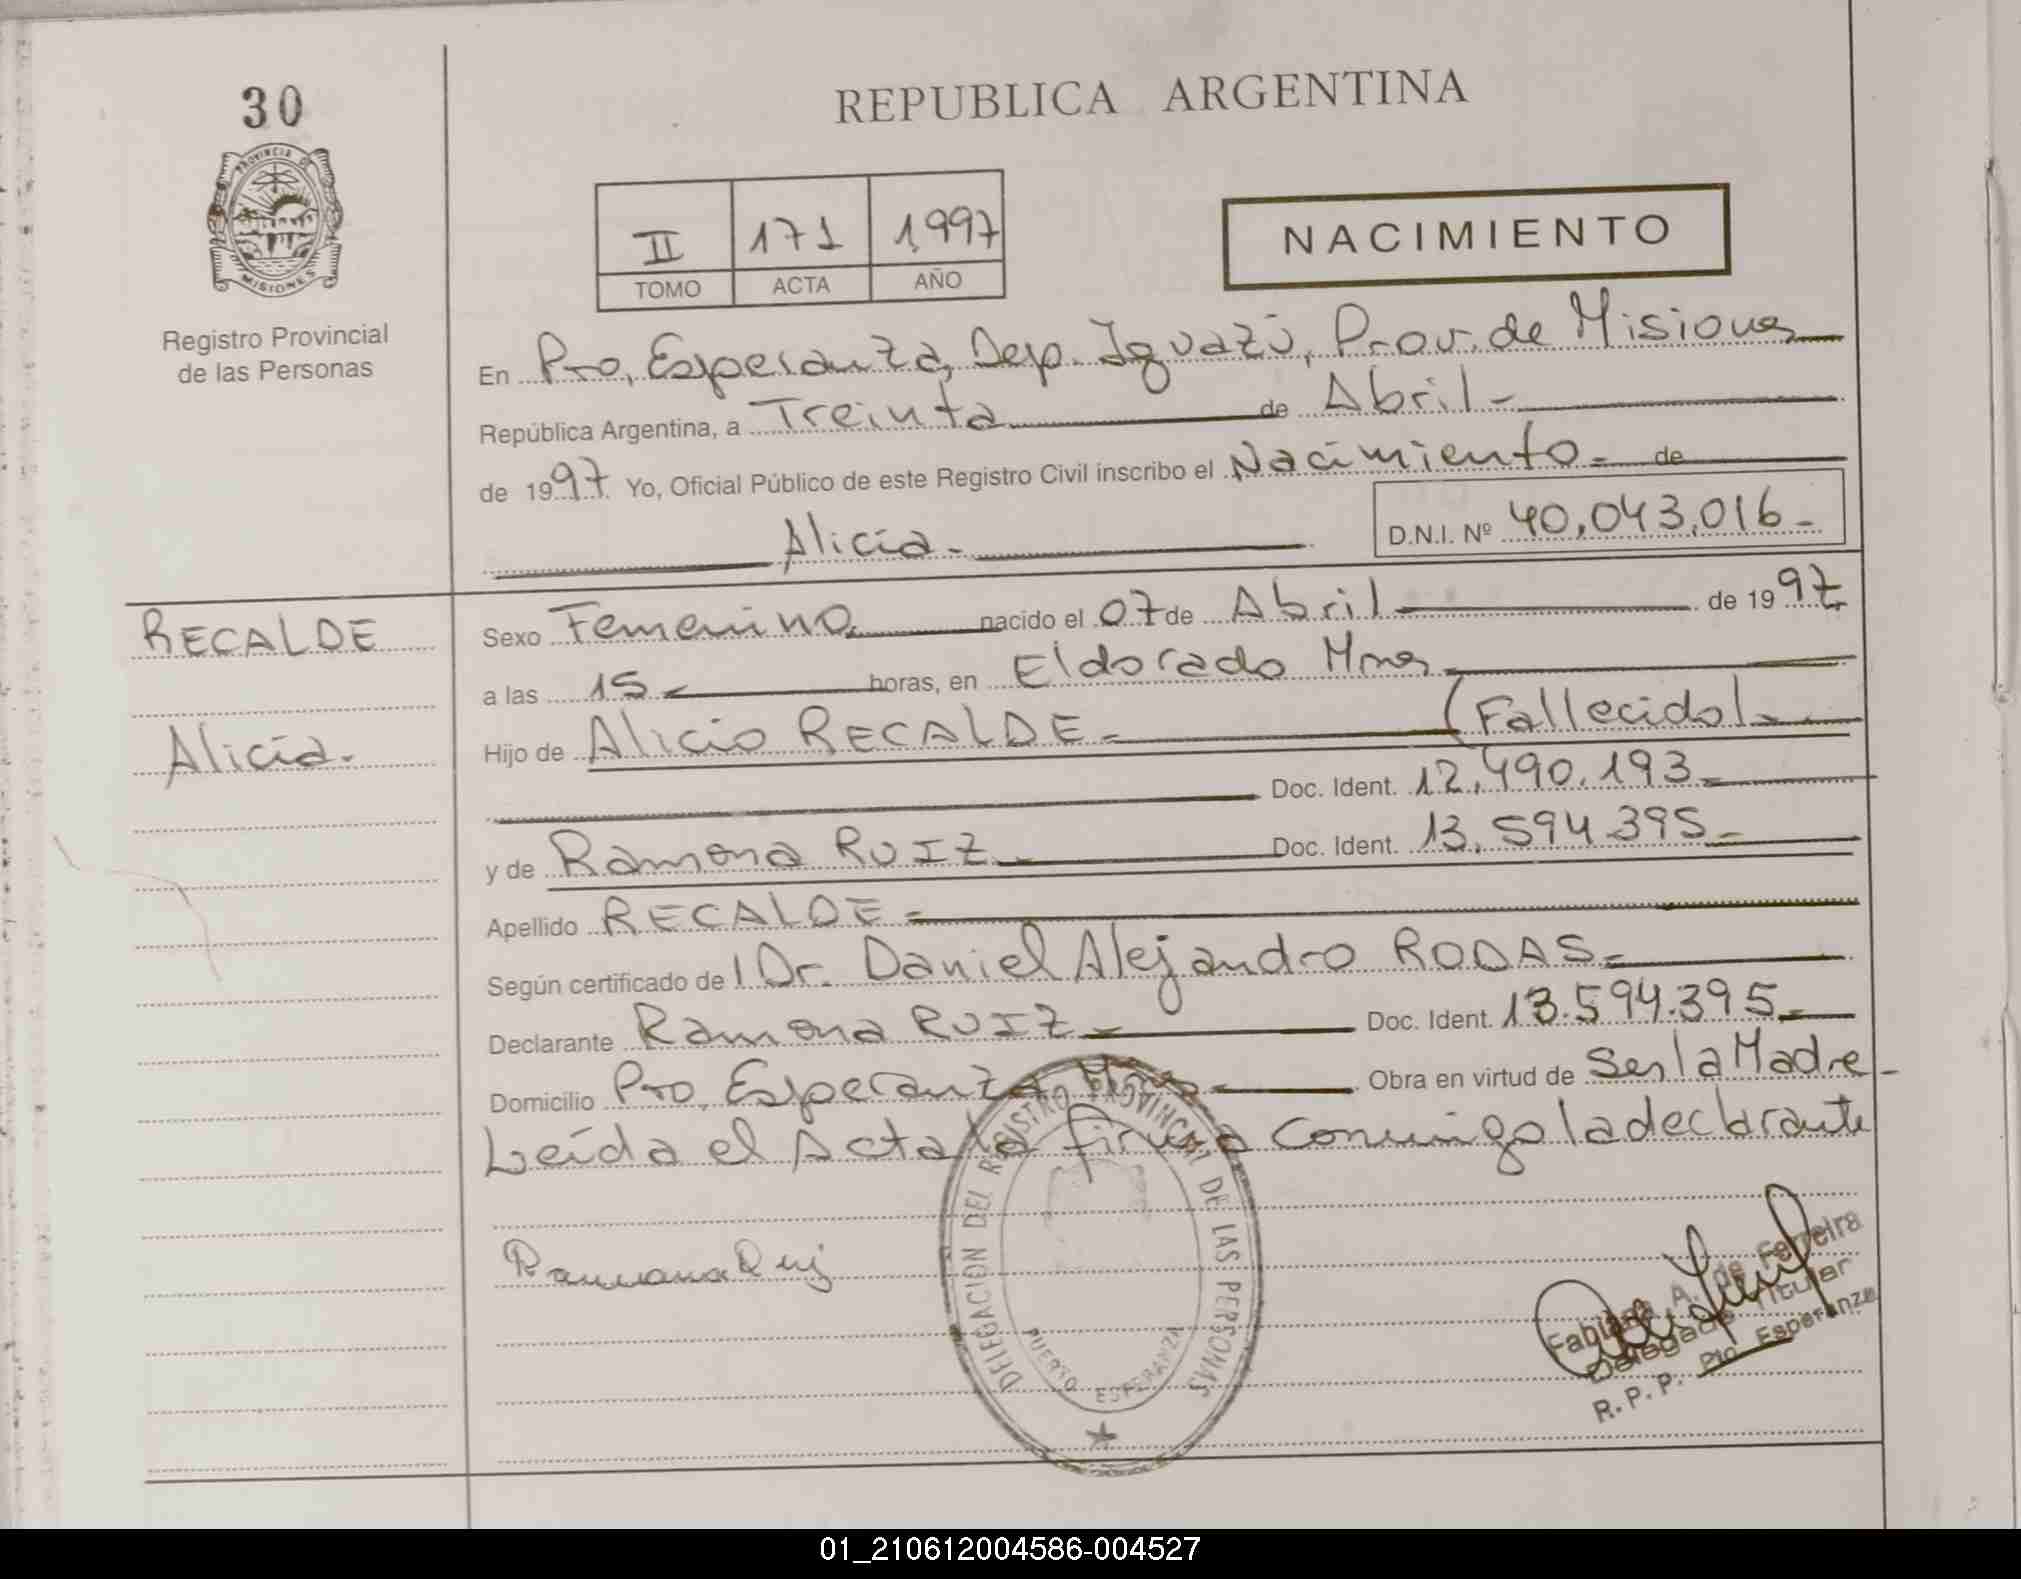 30
PROVINCIA DE
MISIONES
Registro Provincial
de las Personas
REPUBLICA ARGENTINA
II 171 1997
TOMO ACTA AÑO
NACIMIENTO
En Pto, Esperanza, Dep. Iguazú, Prov. de Misiones
República Argentina, a Treinta de Abril-
de 1997. Yo, Oficial Público de este Registro Civil inscribo el Nacimiento- de
Alicia- D.N.I. Nº 40,043,016-
RECALDE
Alicia.
Sexo Femenino. nacido el 07 de Abril de 1997.
a las 15- horas, en Eldorado Mnes.
Hijo de Alicio RECALDE- (Fallecido)-
Doc. Ident. 12,490.193-
y de Ramona RUIZ- Doc. Ident. 13.594.395-
Apellido RECALDE-
Según certificado de l Dr. Daniel Alejandro RODAS-
Declarante Ramona RUIZ- Doc. Ident. 13.594.395-
Domicilio Pto. Esperanza Mnes- Obra en virtud de Ser la Madre-
Leída el Acta la firma conmigo la declarante
Ramona Ruiz
DELEGACION DEL REGISTRO PROVINCIAL DE LAS PERSONAS
PUERTO ESPERANZA
Fabiana A. de Ferreira
Delegada Titular
R.P.P. Pto Esperanza
01_210612004586-004527